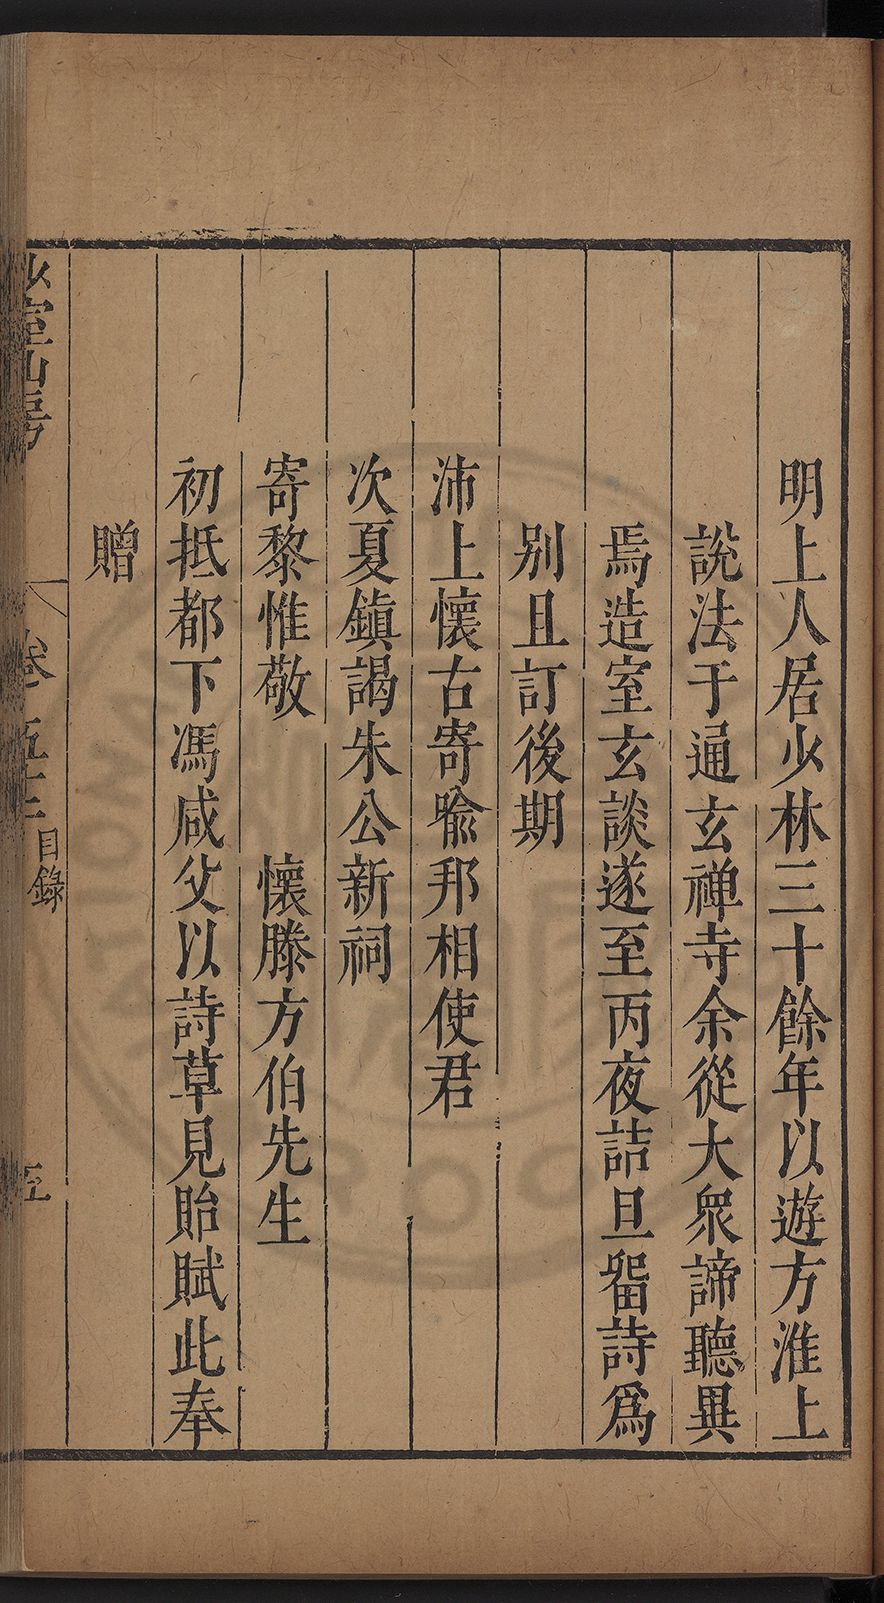 明上人居少林三十餘年以遊方淮上
說法于通玄禪寺余從大衆諦聽異
焉造室玄談遂至丙夜詰旦畱詩爲
別且訂後期
沛上懷古寄喩邦相使君
次夏鎮謁朱公新祠
寄黎惟敬　懷滕方伯先生
初抵都下馮咸父以詩草見貽賦此奉
贈
室山房　卷五十　目錄　五